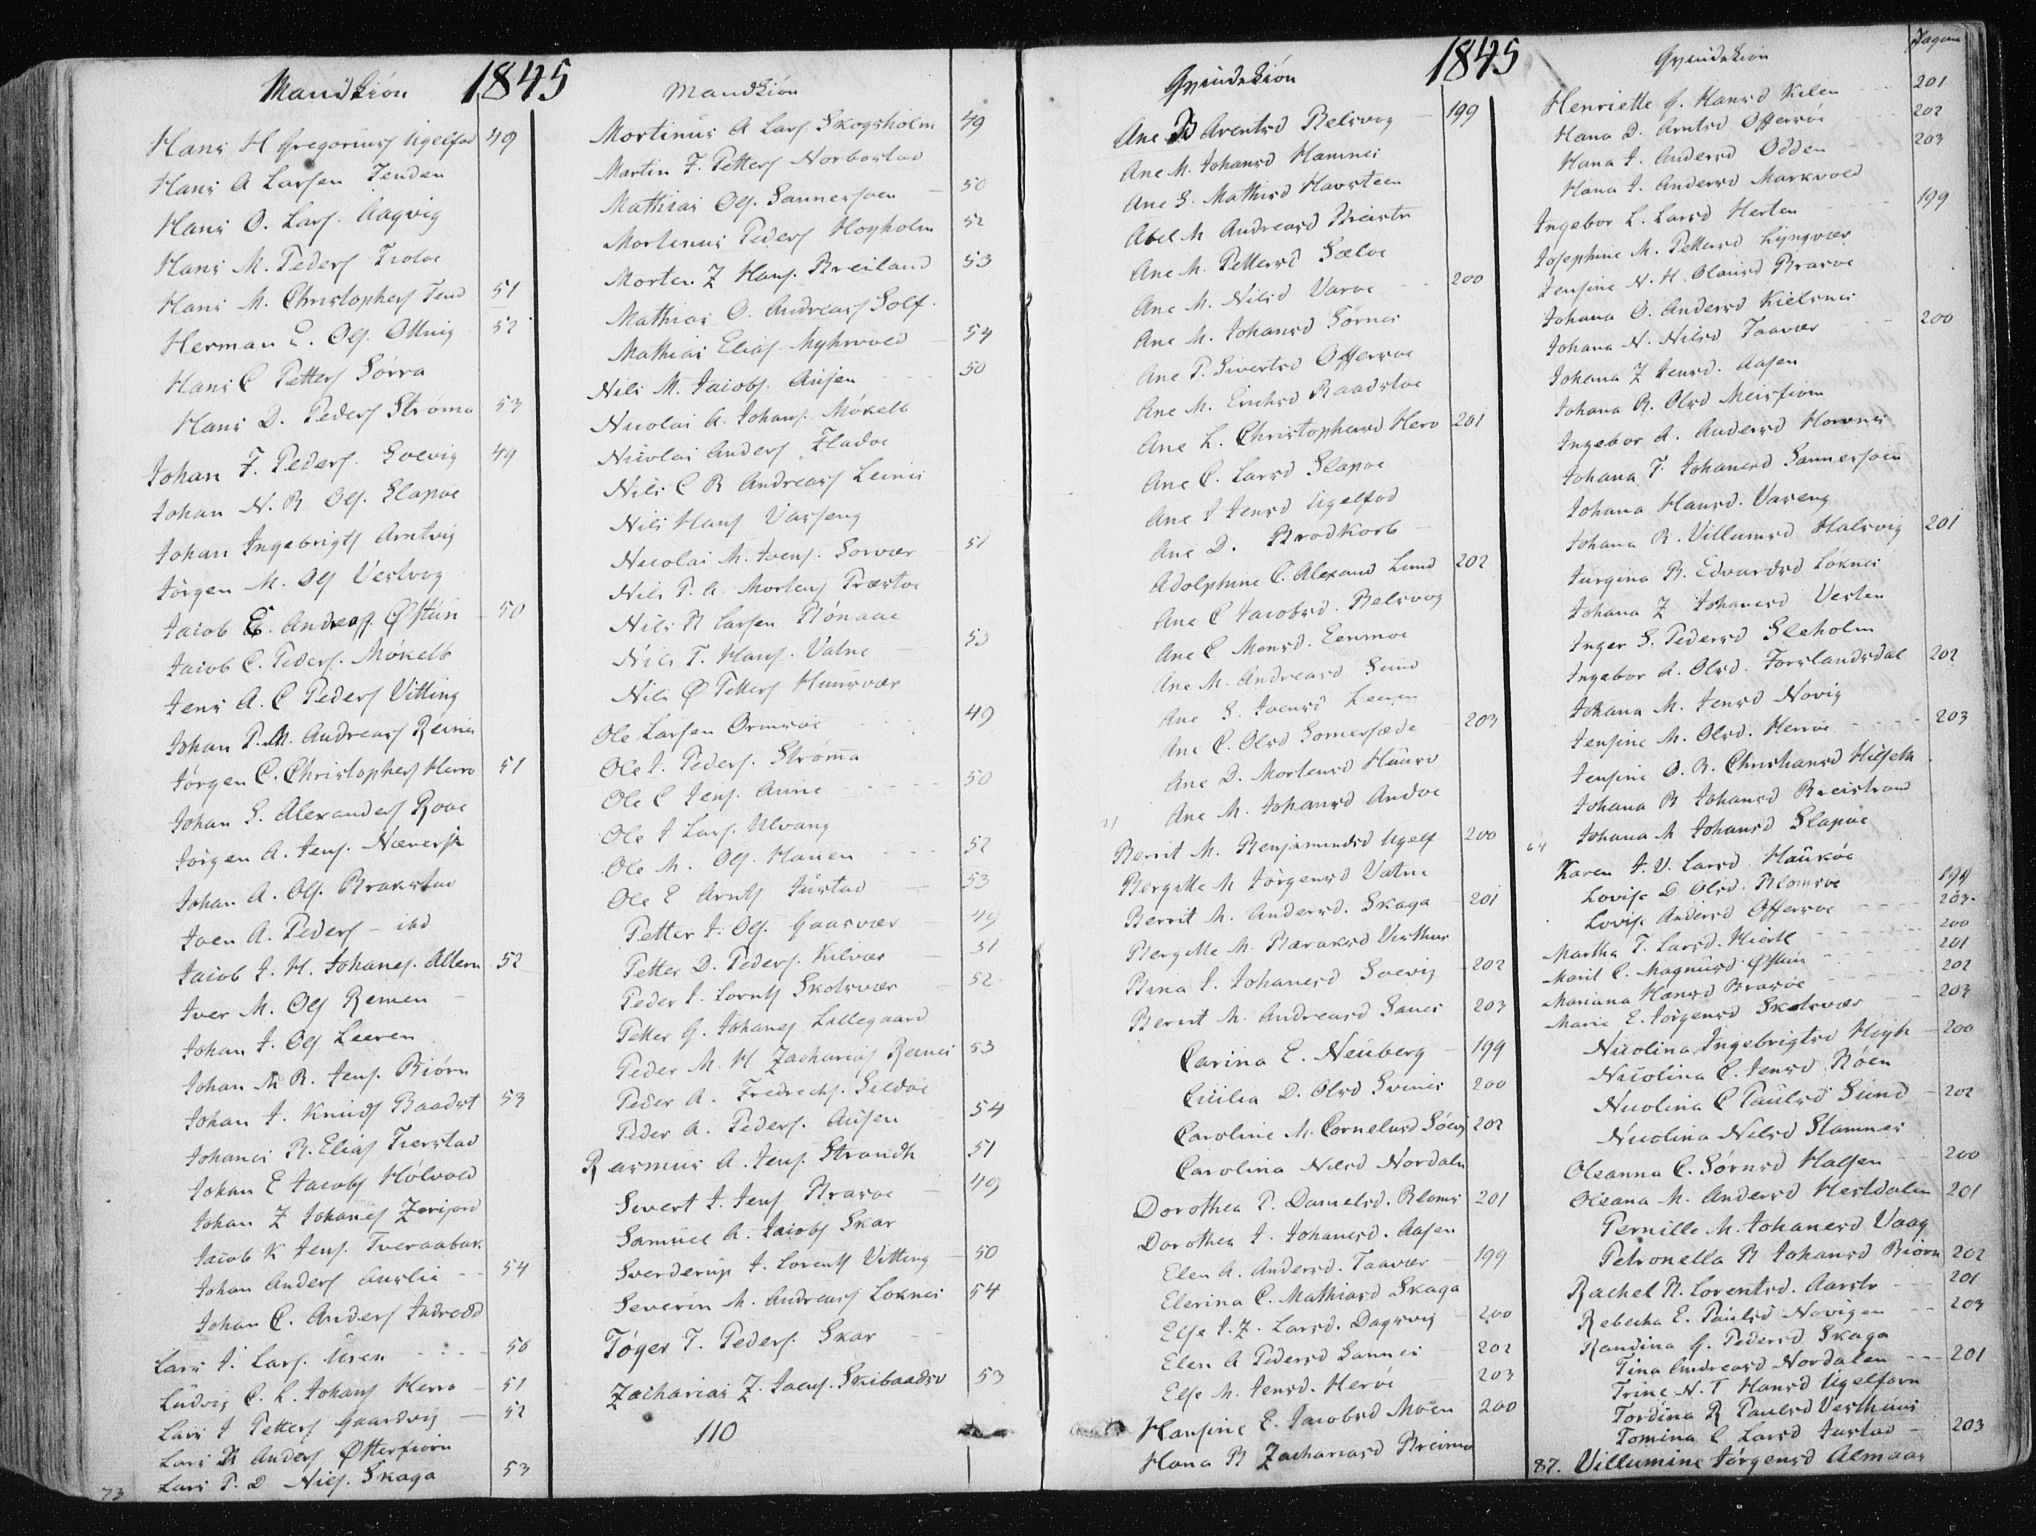 Mandkiön 1845
Hans H Gregoriusf Ugelfod 49
Hans A Larsen Tenden
Hans O. Larf. Aagvig
Hans M. Pederf Troløe
Hans M. Christopherf Tend 51
Herman E. Olf. Olluig 52
Hans C Petterf Sörra
Hans D. Pederf Ströma 53
Johan F. Pederf. Solvig 49
Johan N. B Olf. Slapøe
Johan Ingebrigtf Arntvig
Jörgen M. Olf Vestvog
Jacob E. Andreaf. Østun 50
Jacob C. Pederf. Mökelb
Jens A. C Pederf Vitting
Johan P. M. Andreasf Reines
Jörgen C. Christopherf Herro 51
Johan S. Alexanderf Roøe
Jörgen A. Jenf. Næverfi
Johan A. Olf. Brakstad
Joen A. Pederf - ibd
Jacob J. H. Johanef. Altern 52
Iver M. Olf Remen
Johan J. Olf Leeren
Johan M B. Jenf. Biörn
Johan J. Knudf Baadst 53
Johanes B. Eliaf Tverstad
Johan E Jacobf Hölvold
Johan Z Johanef Zerifjord
Jacob K Jenf. Tveraabak
Johan Anderf Auslie 54
Johan C. Anderf Indreod
Lars J. Larf. Uren 50
Ludvig C. L. Johanf Herro 51
Lars J Petterf Gaardvig 52
Lars B Anderf Øtterfiorn
Lars P. D Nilf. Skaga 53
73
Mandkiön
Mortinus A Larf Skogsholm 49
Martin F. Petterf Norbostad
Mathias Olf. Sannersoen 50
Mortenus Pederf Høyholm 52
Morten Z Hanf. Breiland 53
Mathias O. Andreasf Solf.
Mathias Eliaf. Nyhrvold 54
Nils M. Jacobf. Ausen 50
Nicolai A. Johanf. Mökelb
Nicolai Anderf Fladøe
Nils C B Andreasf Leines
Nils Hanf Varfeng
Nicolai M. Joenf. Sorvær 51
Nils P. A. Mortenf Præstøe
Nils N Larsen Rönaae
Nils T. Hanf. Valne 53
Nils Ø Petterf Huusvær
Ole Larsen Ormsøe 49
Ole J. Pederf. Ströma
Ole C Jenf. Aune 50
Ole J Larf. Ulvang
Ole M. Olf. Hanen 52
Ole E Arntf Justad 53
Petter J. Olf. Gaasvær 49
Petter D. Pederf. Kilvær 51
Peder J. Lorntf Skotsvær 52
Petter G. Johanef Lillegaard
Peder M. H Zachariasf Reines 53
Peder A. Fredrechf. Sildøe
Peder A. Pederf. Ausen 54
Rasmus A. Jenf. Strandh 51
Sivert J. Jenf Brasøe 49
Samuel A. Jacobf Skar
Sverderup J. Lorentf Vitting 50
Severin M. Andreasf Loknes 54
Töger T. Pederf. Skar
Zacharias Z. Joenf. Skibaadsv 53
110
Qvindekiön 1845
Ane B Arentsd Belsvog 199
Ane M. Johansd Hamnes
Ane S. Mathisd Havsteen
Abel M Andreasd Breistr
Ane M. Pettersd Sæløe
Ane M. Nilsd Varøe 200
Ane M. Johansd Sörnes
Ane P. Sivertsd Offersøe
Ane M. Erichsd Baadstøe
Ane L. Christophersd Hero 201
Ane C. Larsd Slapøe
Ane J Jensd Ugelfod
Ane D. Brodkorb
Adolphine C. Alexand Lund 202
Ane C Jacobsd. Belsvog
Ane C Monsd. Eenmoe
Ane M. Andreasd Sund
Ane S. Joensd Leeren
Ane C. Olsd Somersæde 203
Ane D. Mortensd Huusv
Ane M. Johansd Andøe
Berrit M. Benjaminsd Ugelf 200
Bergitte M Jörgensd Vatne
Berrit M. Andersd. Skaga 201
Bergitte M. Baraksd Vesthus
Bina J. Johanesd Soevig 202
Berrit M. Andreasd Sanes 203
Carina E. Neuberg 199
Cicilia D. Olsd Svines 200
Caroline M. Cornelusd Söevi 202
Carolina Nilsd Nordaln
Dorothea P. Danielsd. Bloms 201
Dorothea J. Johanesd. Aasen
Elen A. Andersd. Taavær 199
Elerina C. Mathiasd Skaga
Else J. Z. Larsd. Dagsvig 200
Elen A Pedersd Sannes 202
Else M. Jensd. Herøe 203
Hansine E. Jacobsd Moen 200
Hana B Zachariasd Breimo
Qvindekiön Pagina
Henriette G. Hansd Kilen 201
Hana D. Arntsd Offersöe 202
Hana J. Andersd Odden 203
Hana J. Andersd Markvold
Ingebor L. Larsd Herten 199
Josephine M. Pettersd Lyngvær
Jensine N. H. Olausd Brasøe
Johana O. Andersd Kielsnes
Johana N. Nilsd Taavær 200
Johana Z Jensd. Aasen
Johana B. Olsd Meisfiorn
Ingebor A. Andersd Hornnes
Johana T. Johanesd Sannersoen
Johana Hansd. Vareng
Johana B. Villumsd Halsvig 201
Jurgina B. Edvardsd Löknes
Johana Z Johanesd Vesten
Inger S. Pedersd Sleholm
Ingebor A. Olsd. Forslandsdal 202
Johana M. Jensd Novig
Jensine M. Olsd. Herrøe 203
Jensine O. B. Christiansd Hilseth
Johana B Johansd Breistrand
64 Johana M Johansd Slapøe
Karen J. V. Larsd Haukøe
Lovise D Olsd. Blomsøe 199
Lovise Andersd Offersøe 203
Martha T. Larsd. Hierll 200
Marit C. Magnusd Østun 201
Mariana Hansd Brasøe 202
Marie E. Jörgensd Skotsvær 203
Nicolina Ingebrigtsd Høyh 200
Nicolina C. Jensd Röen
Nicolina C Paulsd Sund 202
Nicolina Nilsd Stamnes
Oleanna C. Sörnsd Halsen 200
Oleana M. Andersd Hestdalen 201
Pernille M. Johanesd Vaag
Petronella B Johansd Biörn 202
Rachel N. Lorentsd. Aarstr 201
Rebecka E. Paulsd Novigen 203
Randina G. Pedersd Skaga
Tina Andreasd Nordalen 201
Trine N. T Hansd Ugelforn
Tordina B Paulsd Vesthuus
Tomina C Larsd Justad 203
87. Villumine Jörgensd Almaas